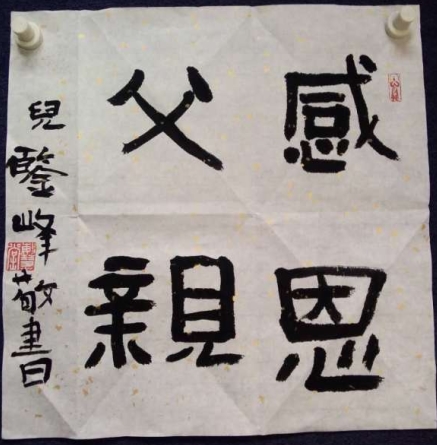 感恩
父親
兒鋻峰敬書曰